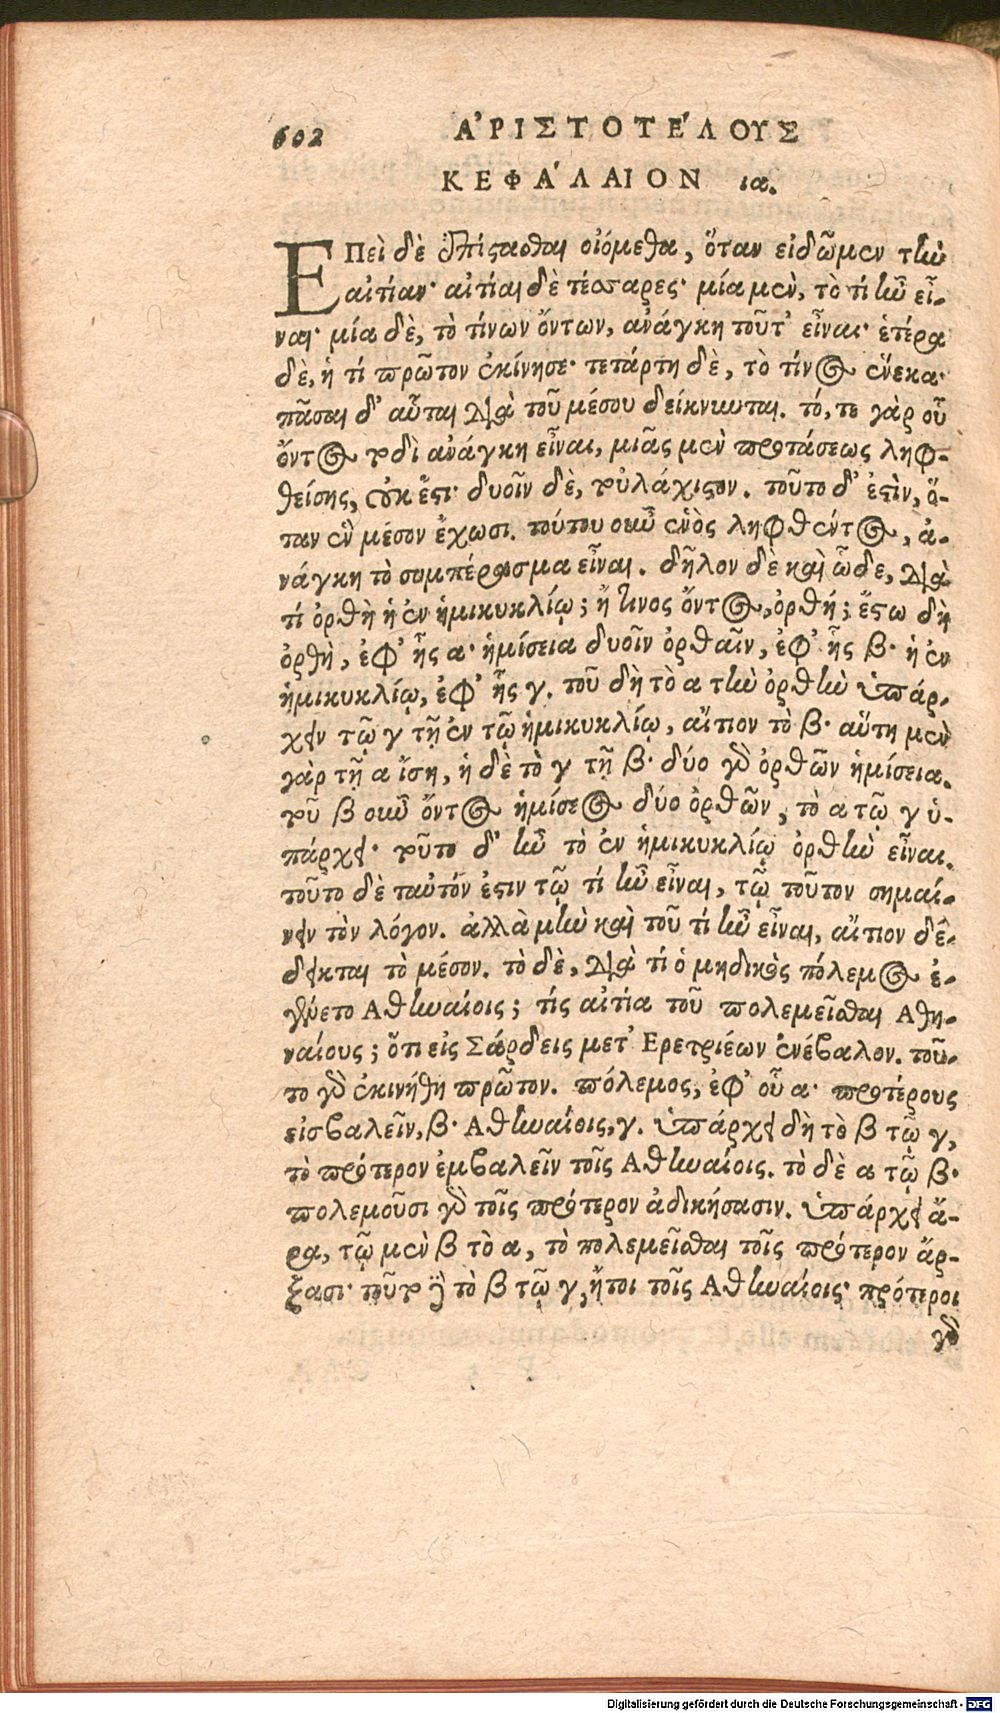 602 ἈΡΙΣΤΟΤΈΛΟΥΣ
ΚΕΦΆΛΑΙΟΝ ια.
ΕΠεὶ δὲ ἐπίστασθαι οἰόμεθα, ὅταν εἰδῶμεν τὴν
αἰτίαν· αἰτίαι δὲ τέσσαρες· μία μὲν, τὸ τί ἦν εἶ-
ναι· μία δὲ, τὸ τίνων ὄντων, ἀνάγκη τοῦτ' εἶναι· ἑτέρα
δὲ, ἡ τί πρῶτον ἐκίνησε· τετάρτη δὲ, τὸ τίνος ἕνεκα·
πᾶσαι δ' αὗται διὰ τοῦ μέσου δείκνυνται. τό, τε γὰρ οὗ
ὄντος τοδὶ ἀνάγκη εἶναι, μιᾶς μὲν προτάσεως ληφ-
θείσης, οὐκ ἔστι· δυοῖν δὲ, τοὐλάχιστον. τοῦτο δ' ἐστὶν, ὅ-
ταν ἓν μέσον ἔχωσι. τούτου οὖν ἑνὸς ληφθέντος, ἀ-
νάγκη τὸ συμπέρασμα εἶναι. δῆλον δὲ καὶ ὧδε, διὰ
τί ὀρθὴ ἡ ἐν ἡμικυκλίῳ; ἢ τίνος ὄντος, ὀρθή; ἔστω δὴ
ὀρθὴ, ἐφ' ἧς α· ἡμίσεια δυοῖν ὀρθαῖν, ἐφ' ἧς β· ἡ ἐν
ἡμικυκλίῳ, ἐφ' ἧς γ. τοῦ δὴ τὸ α τὴν ὀρθὴν ὑπάρ-
χειν τῷ γ τῇ ἐν τῷ ἡμικυκλίῳ, αἴτιον τὸ β· αὕτη μὲν
γὰρ τῇ α ἴση, ἡ δὲ τὸ γ τῇ β· δύο γὰρ ὀρθῶν ἡμίσεια.
τοῦ β οὖν ὄντος ἡμίσεος δύο ὀρθῶν, τὸ α τῷ γ ὑ-
πάρχει· τοῦτο δ' ἦν τὸ ἐν ἡμικυκλίῳ ὀρθὴν εἶναι.
τοῦτο δὲ ταὐτόν ἐστιν τῷ τί ἦν εἶναι, τῷ τοῦτον σημαί-
νειν τὸν λόγον. ἀλλὰ μὴν καὶ τοῦ τί ἦν εἶναι, αἴτιον δέ-
δεικται τὸ μέσον. τὸ δὲ, διὰ τί ὁ μηδικὸς πόλεμος ἐ-
γένετο Αθηναίοις; τίς αἰτία τοῦ πολεμεῖσθαι Αθη-
ναίους; ὅτι εἰς Σάρδεις μετ' Ερετριέων ἐνέβαλον. τοῦ-
το γὰρ ἐκινήθη πρῶτον. πόλεμος, ἐφ' οὗ α· προτέρους
εἰσβαλεῖν, β· Αθηναίοις, γ. ὑπάρχει δὴ τὸ β τῷ γ,
τὸ πρότερον ἐμβαλεῖν τοῖς Αθηναίοις. τὸ δὲ α τῷ β·
πολεμοῦσι γὰρ τοῖς πρότερον ἀδικήσασιν. ὑπάρχει ἄ-
ρα, τῷ μὲν β τὸ α, τὸ πολεμεῖσθαι τοῖς πρότερον ἄρ-
ξασι· τοῦτο δὲ τὸ β τῷ γ, ἤτοι τοῖς Αθηναίοις· πρότεροι
γὰρ
Digitalisierung gefördert durch die Deutsche Forschungsgemeinschaft - DFG